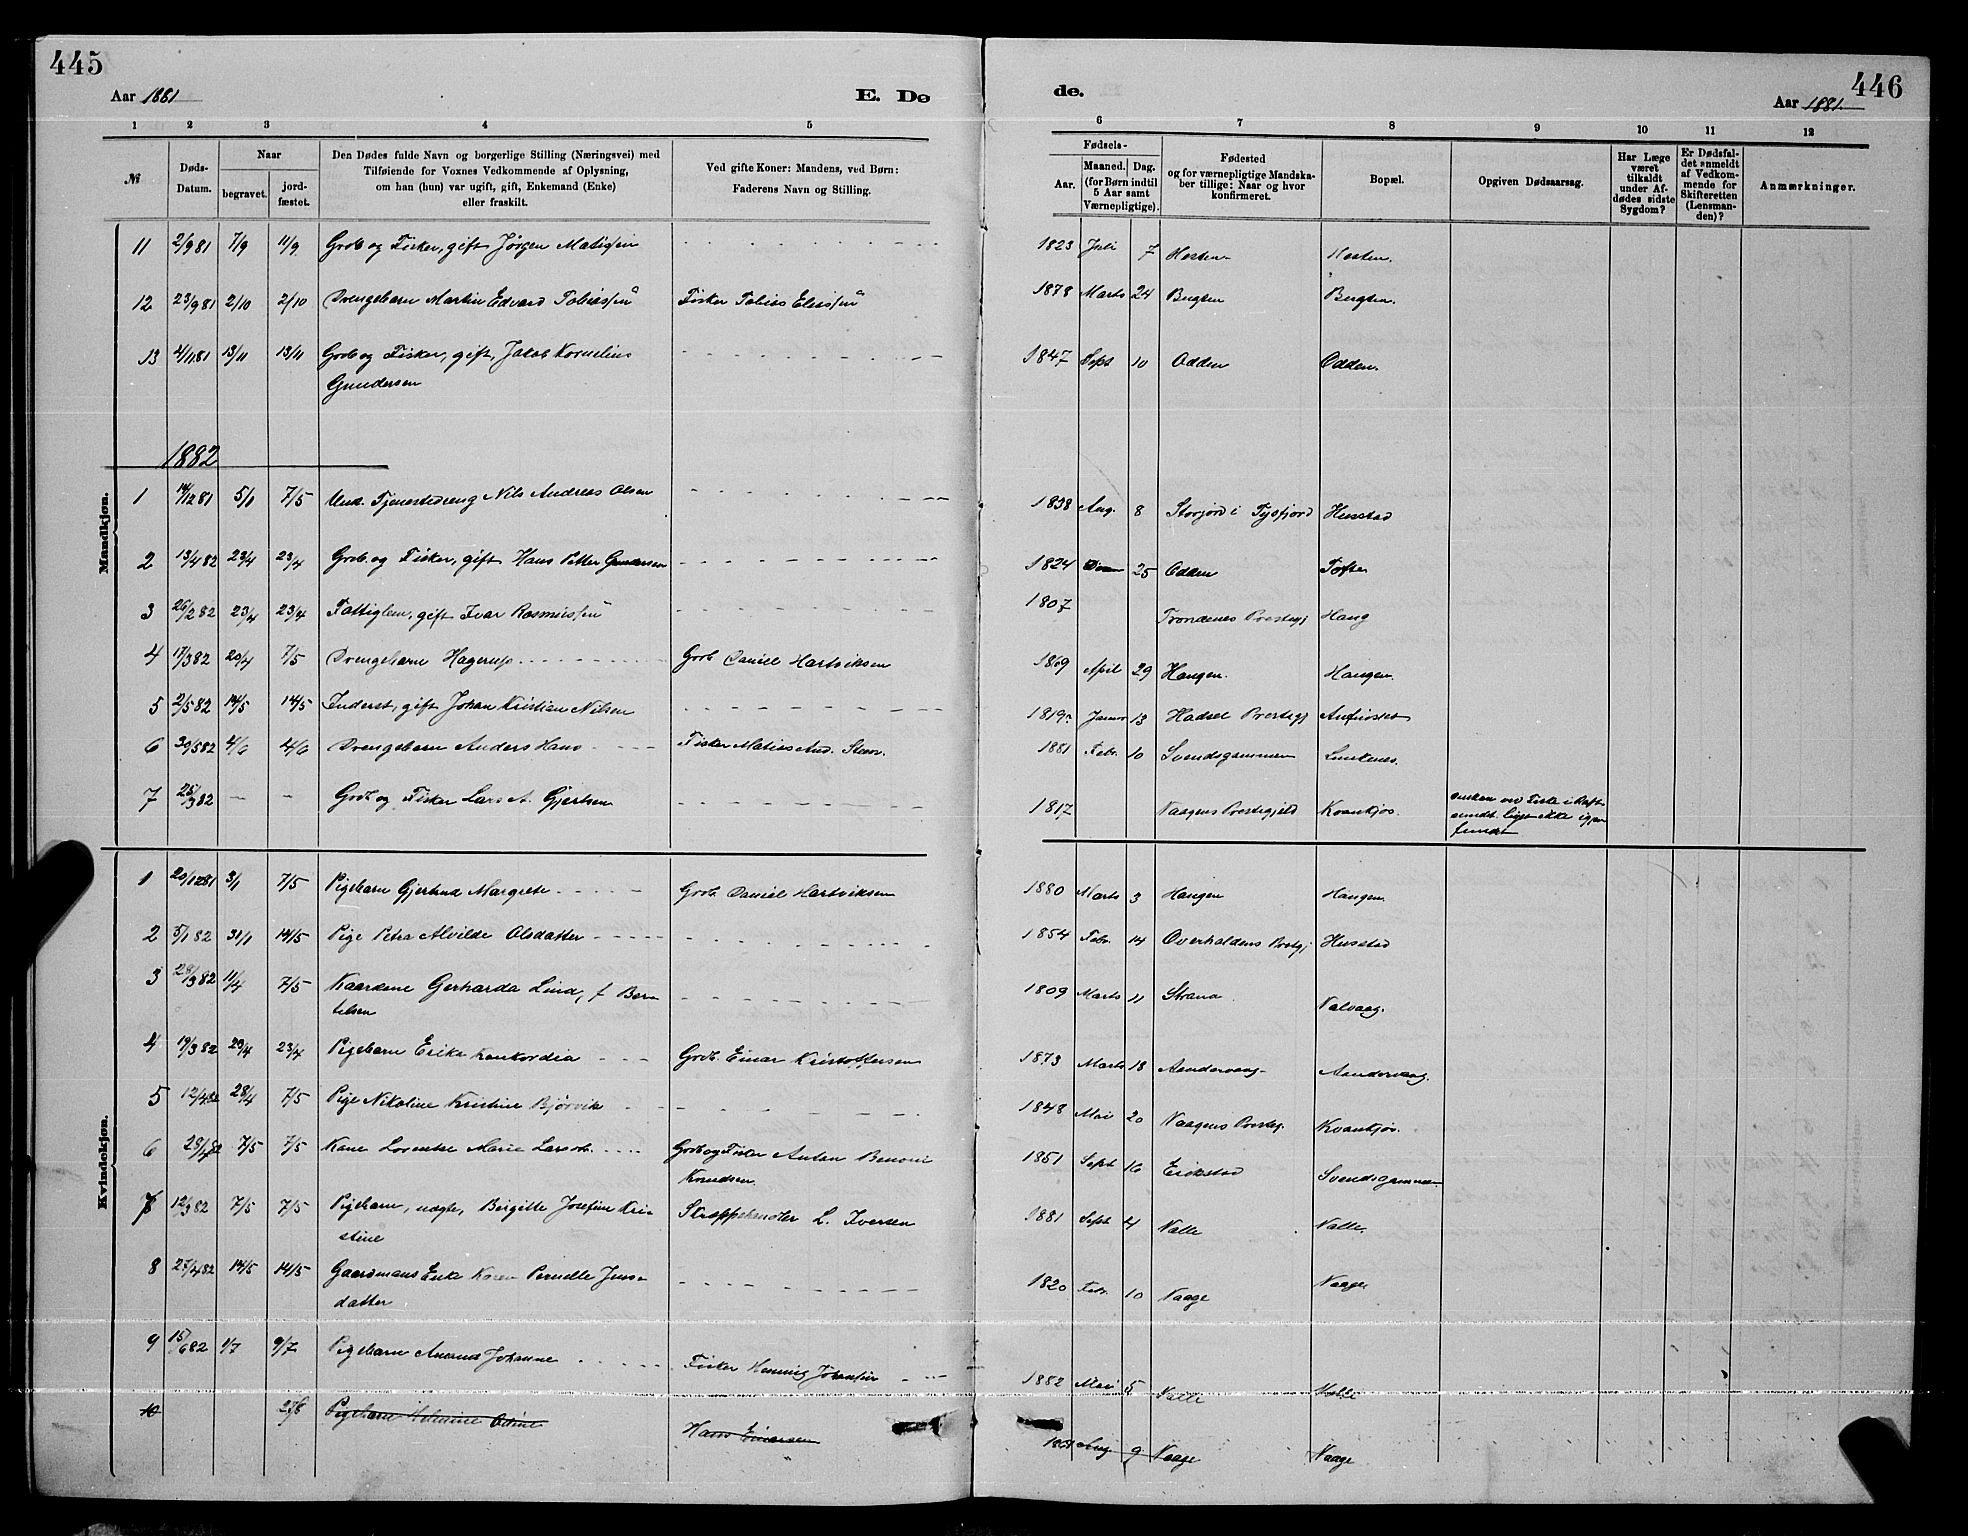 445
Aar 1881
E. Dø
1 2 3 4 5
№
Døds-Datum.
Naar
begravet.
jordfæstet.
Den Dødes fulde Navn og borgerlige Stilling (Næringsvei) med
Tilføiende for Voxnes Vedkommende af Oplysning,
om han (hun) var ugift, gift, Enkemand (Enke)
eller fraskilt.
Ved gifte Koner: Mandens, ved Børn:
Faderens Navn og Stilling.
11 2/9 81 7/9 11/9 Grdb og Fisker, gift Jörgen Matissen
12 23/9 81 2/10 2/10 Drengebarn Martin Edvard Tobiassen Fisker Tobias Eliassen
13 4/11 81 13/11 13/11 Grdb og Fisker, gift, Jakob Kornelius
Gundersen
1882
Mandkjøn.
1 14/12 81 5/1 7/5 Unk. Tjenestedreng Nils Andreas Olsen
2 13/4 82 23/4 23/4 Grdb. og Fisker, gift Hans Petter Gundersen
3 26/2 82 23/4 23/4 Fattiglem, gift Ivar Rasmussen
4 17/3 82 20/4 7/5 Drengebarn Hagerup Grdb. Daniel Hartviksen
5 2/5 82 14/5 14/5 Inderst, gift Johan Kristian Nilsen
6 30/5 82 4/6 4/6 Drengebarn Anders Hans Fisker Matias And. Steen.
7 28/3 82 – – Grdb og Fisker Lars A. Gjertsen
Kvindekjøn.
1 20/12 81 3/1 7/5 Pigebarn Gjertrud Margrete Grdb. Daniel Hartviksen
2 5/1 82 31/1 14/5 Pige Petra Alvilde Olsdatter
3 28/3 82 11/4 7/5 Kaarkone Gerharda Lind, f. Bern
telsen
4 19/3 82 23/4 23/4 Pigebarn Erika Konkordia Grdb. Einar Kristoffersen
5 12/4 82 28/4 7/5 Pige Nikoline Kristine Bjørvik
6 28/4 82 7/5 7/5 Kone Lorentse Marie Larsdt. Grdb og Fisker Anton Benoni
Knudsen.
7 12/3 82 7/5 7/5 Pigebarn, uægte, Birgitte Josefine Kri-
stine Skræppehandler L. Iversen
8 27/4 82 14/5 14/5 Gaardmans Enke Karen Pernelle Jens-
datter
9 15/6 82 1/7 9/7 Pigebarn Johanne Fisker Henning Johansen
10 Pigebarn Odine Hans Einarsen
446
de.
Aar 1881.
6 7 8 9 10 11 12
Fødsels-
Aar.
Maaned. Dag.
(for Børn indtil
5 Aar samt
Værnepligtige).
Fødested
og for værnepligtige Mandska-
ber tillige: Naar og hvor
konfirmeret.
Bopæl.
Opgiven Dødsaarsag.
Har Læge
været
tilkaldt
under Af-
dødes sidste
Sygdom?
Er Dødsfal-
det anmeldt
af Vedkom-
mende for
Skifteretten
(Lensman-
den)?
Anmærkninger.
1823 Juli 7 Hesten Hesten.
1878 Marts 24 Bugten Bugten.
1847 Sept 10 Odden Odden.
1838 Aug. 8 Storjord i Tysfjord Husstad
1824 25 Odden Tofte
1807 Trondenes Prestegj Haug
1869 April 29 Haugen. Haugen.
1819 Januar 13 Hadsel Prestegj
1881 Febr. 10 Svendsgammen Lunkenes.
1817 Vaagens Prestegjeld Kvankjos. sunken ved Fiske i Raft-
sundet. Liget ikke igjen
fundet
1880 Marts 3 Haugen Haugen.
1854 Febr. 14 Overhaldens Prestgj Husstad
1809 Marts 11 Strand Valvaag.
1873 Marts 18 Aandervaag Aandervaag.
1848 Mai 20 Vaagens Prestegj. Kvankjos.
1851 Sept 16 Eidkstad Svendsgammen
1881 Sept 4 Valle Valle.
1820 Febr. 10 Vaage Vaage.
1882 Mai 5 Valle Valle
Aug. 9 Vaage Vaage